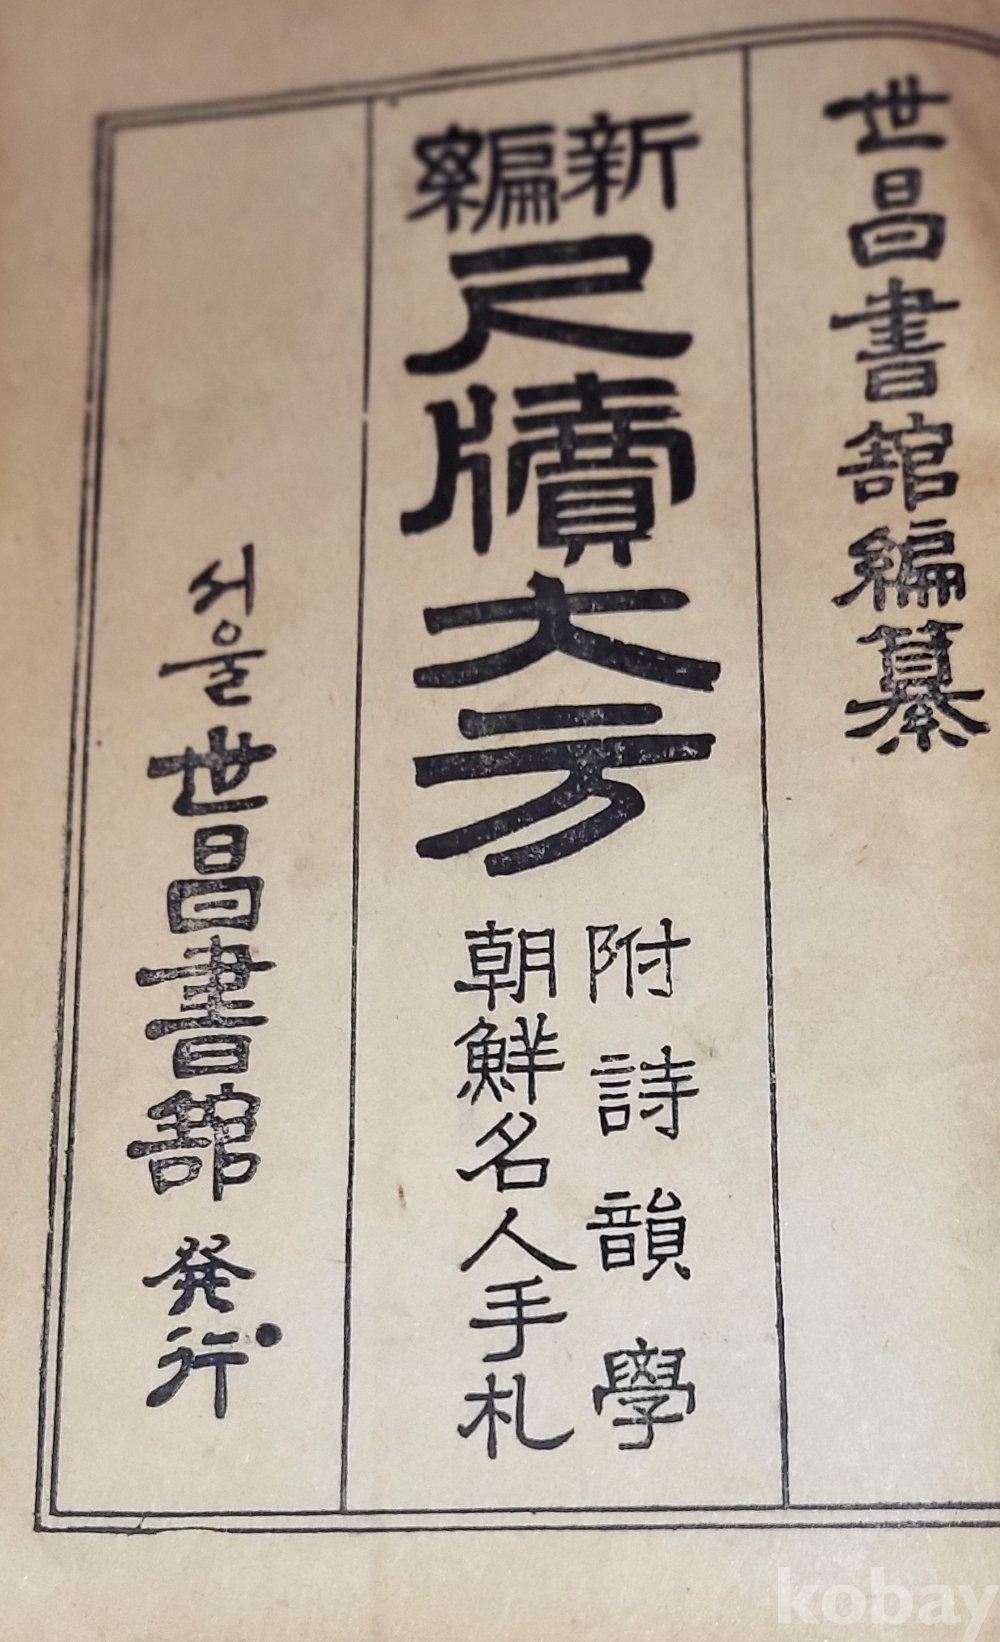 世昌書舘編纂
新編
尺牘大方
附詩韻學
朝鮮名人手札
서울 世昌書舘 発行
kobay